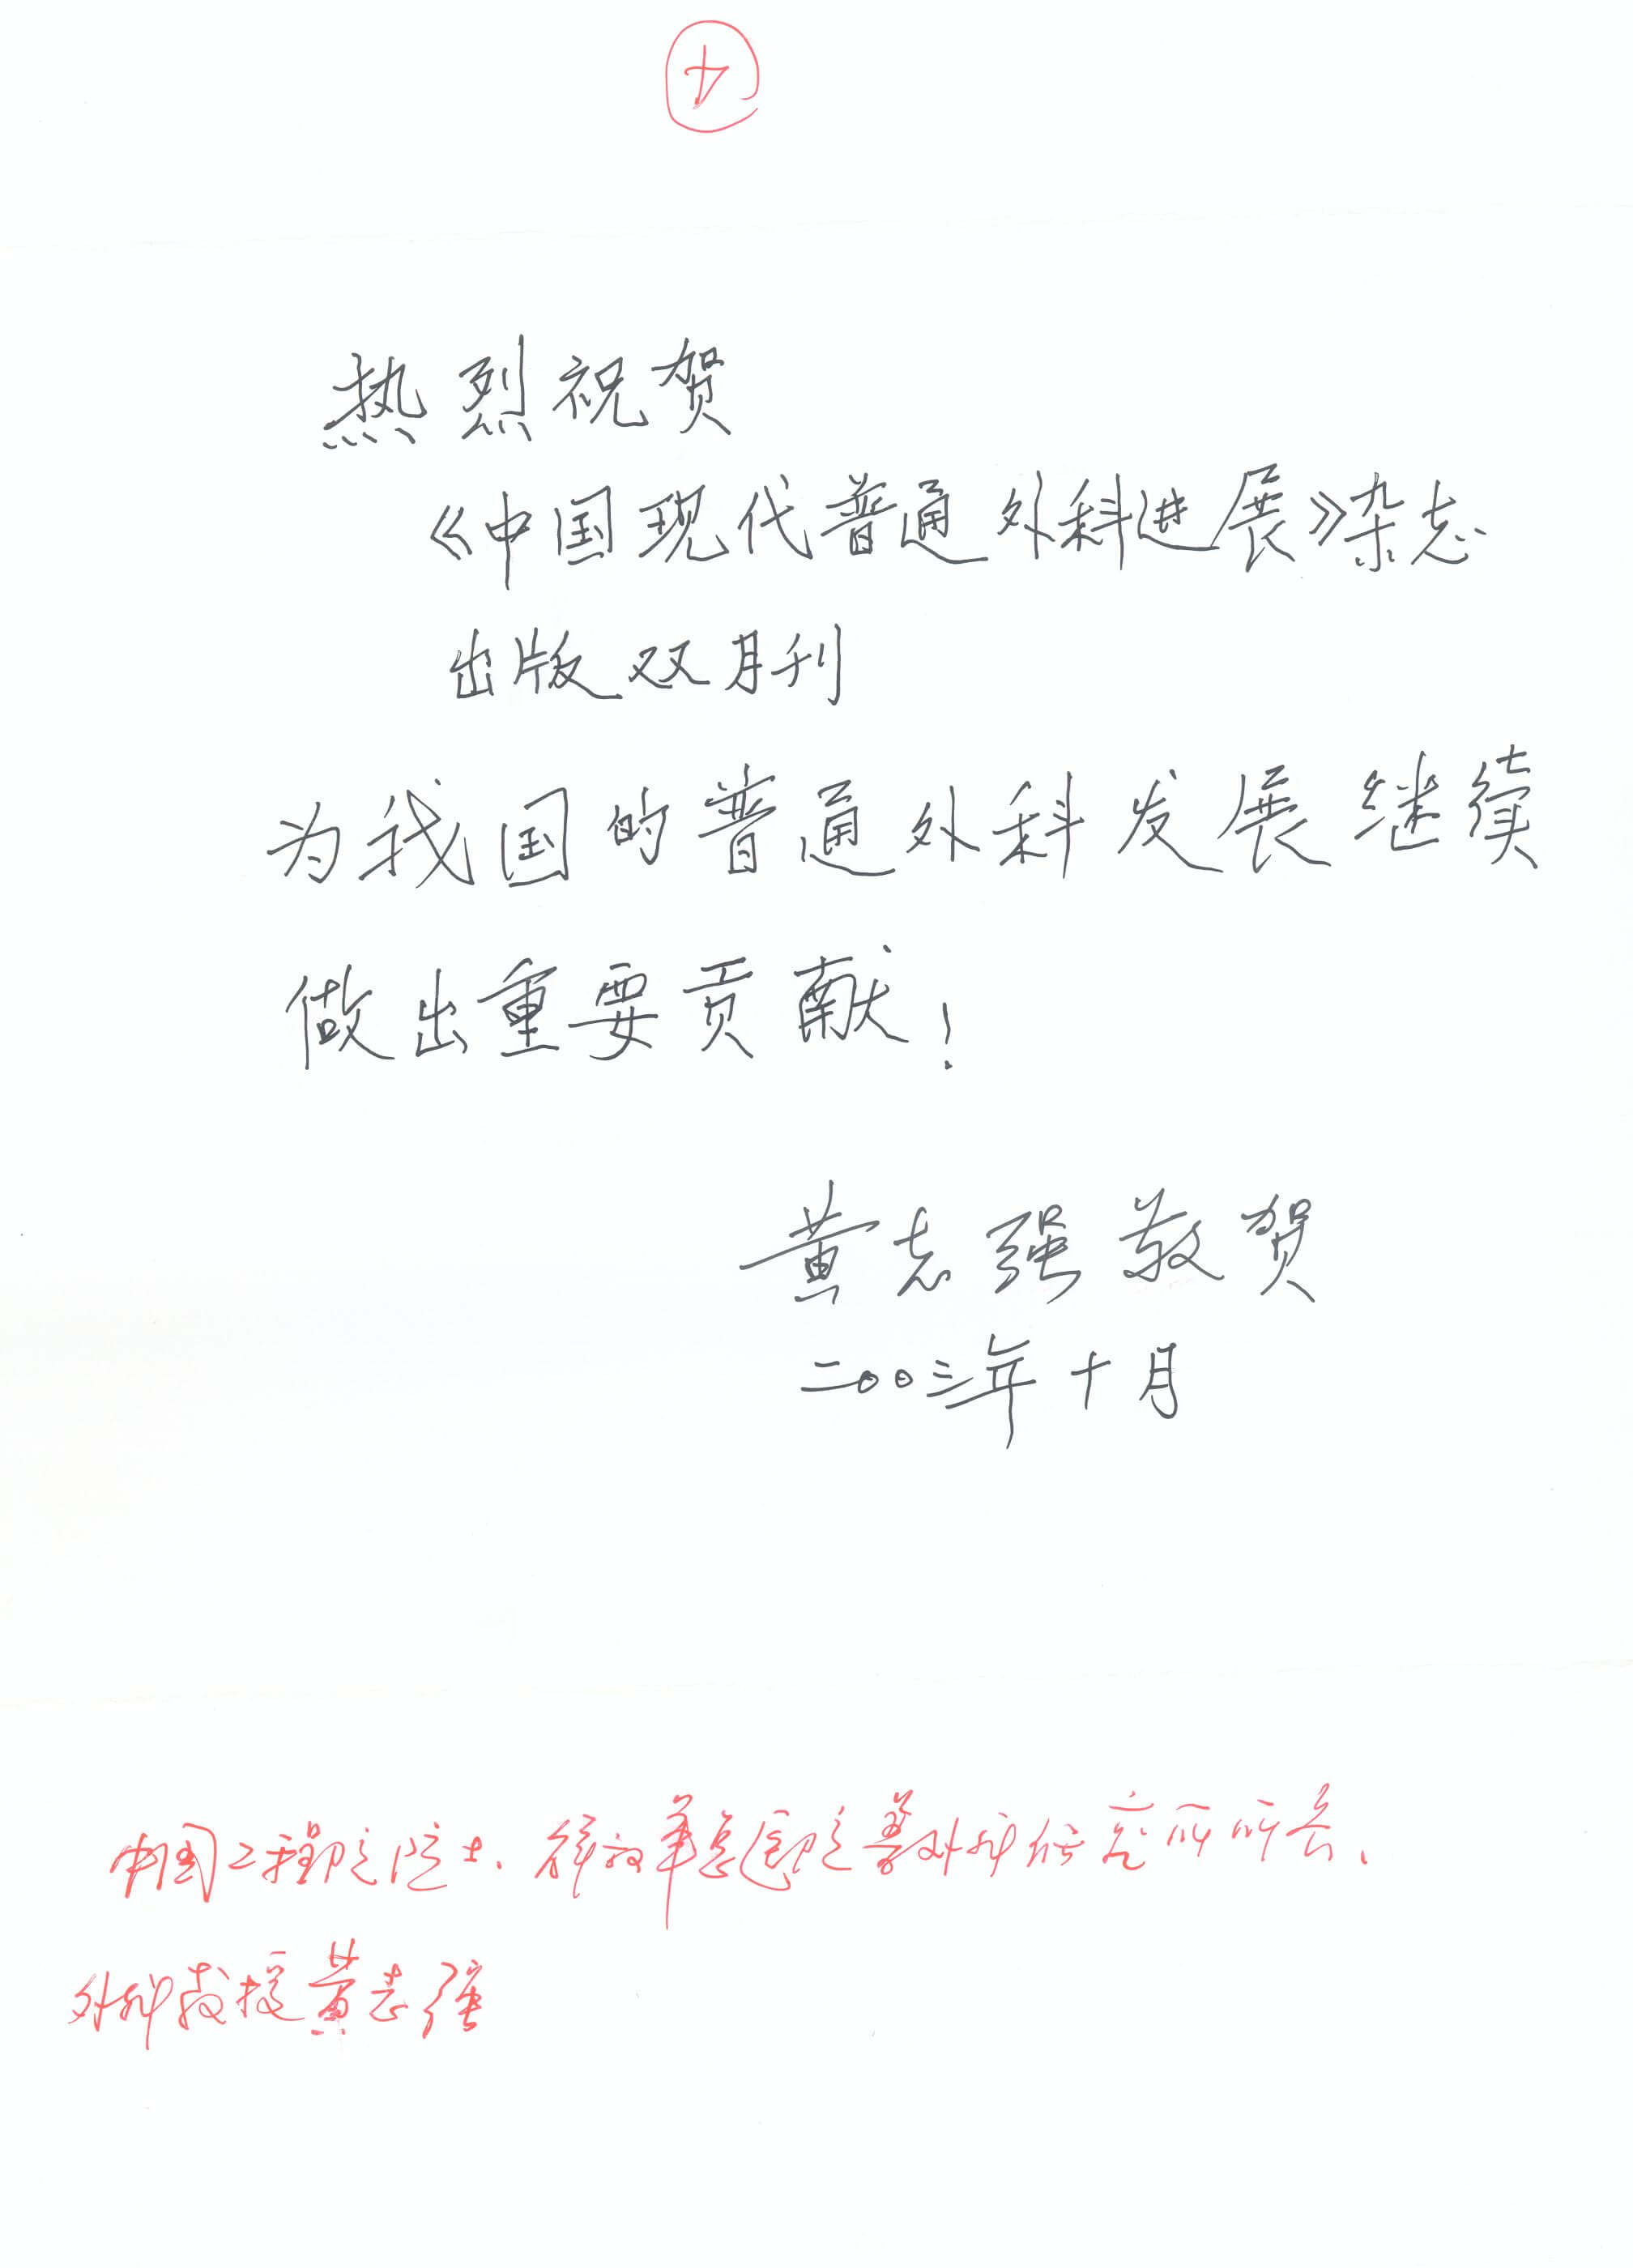 4
热烈祝贺
《中国现代普通外科进展》杂志
出版双月刊
为我国的普通外科发展继续
做出重要贡献!
黄志强敬贺
二〇〇三年十月
中国工程院院士、解放军总医院普外科研究所所长、
外科教授黄志强